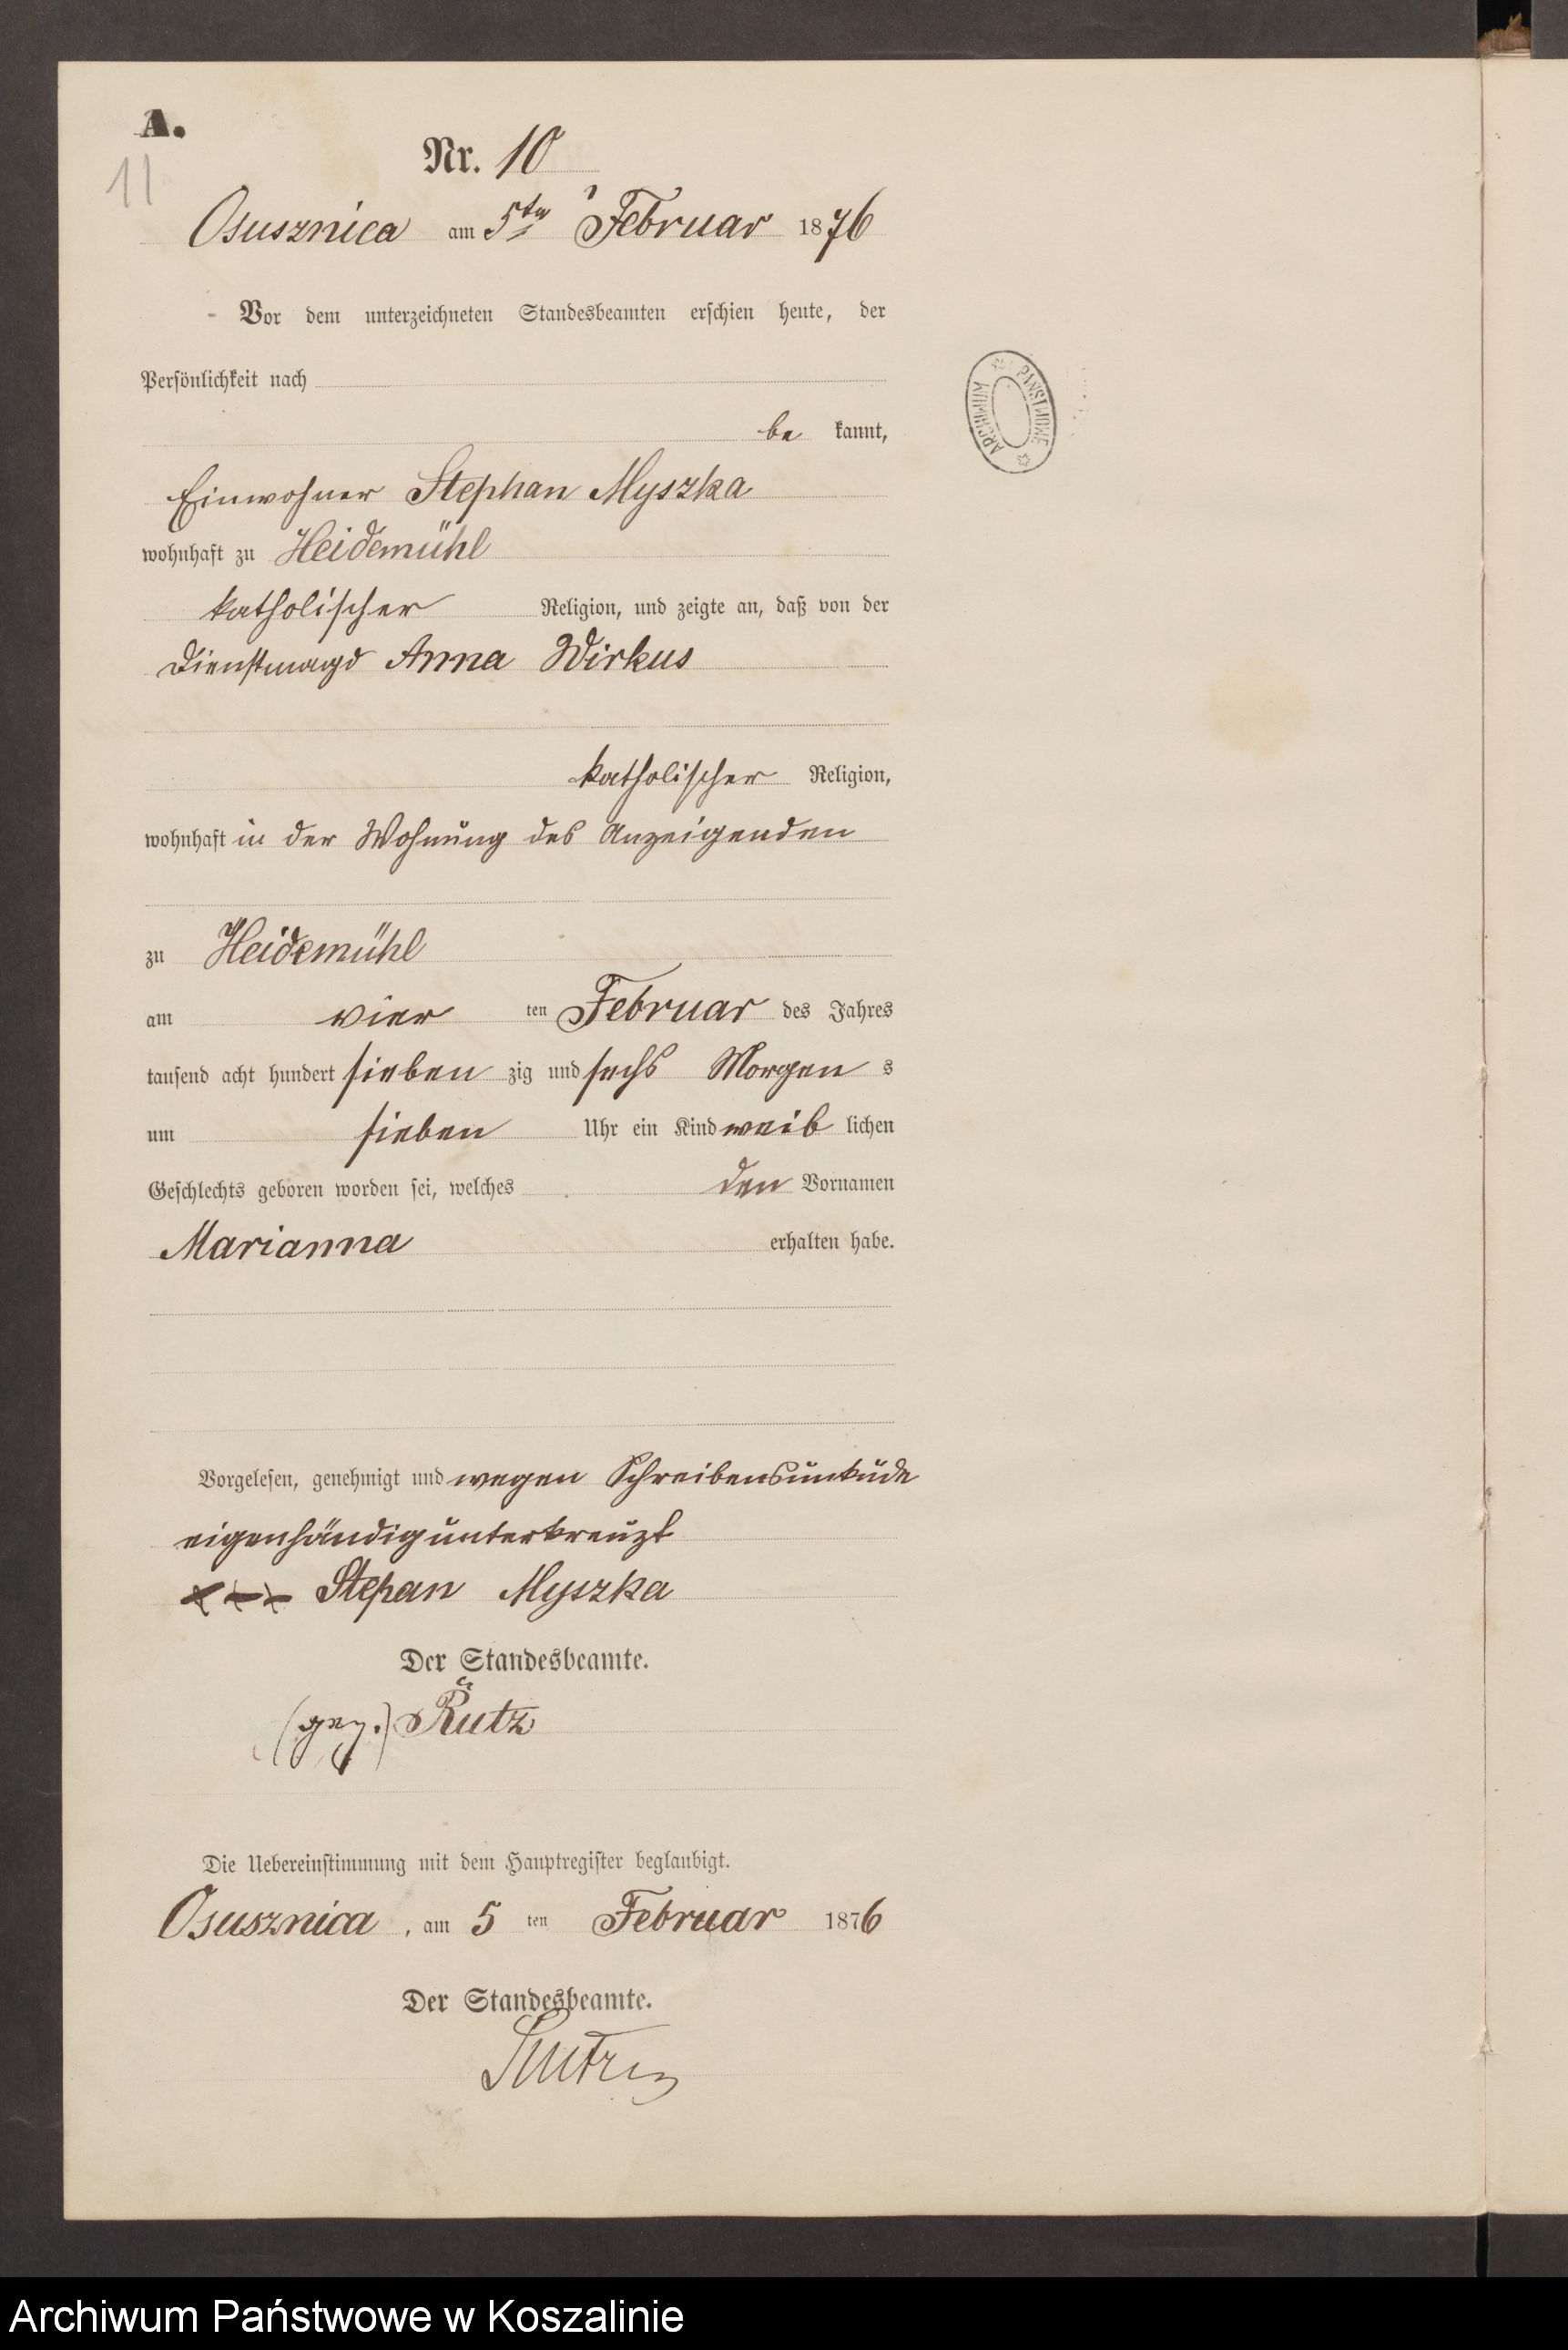 A.
11
Nr. 10
Osusznica am 5ten Februar 1876
Vor dem unterzeichneten Standesbeamten erschien heute, der
Persönlichkeit nach
be kannt,
Einwohner Stephan Myszka
wohnhaft zu Heidemühl
katholischer Religion, und zeigte an, daß von der
Dienstmagd Anna Wirkus
katholischer Religion,
wohnhaft in der Wohnung des Anzeigenden
zu Heidemühl
am vier ten Februar des Jahres
tausend acht hundert sieben zig und sechs Morgen s
um sieben Uhr ein Kind weib lichen
Geschlechts geboren worden sei, welches den Vornamen
Marianna erhalten habe.
Vorgelesen, genehmigt und wegen Schreibensunkude
eigenhändig unterkreuzt
xxx Stepan Myszka
Der Standesbeamte.
(gez.) Rutz
Die Uebereinstimmung mit dem Hauptregister beglaubigt.
Osusznica, am 5 ten Februar 1876
Der Standesbeamte.
ARCHIWUM PAŃSTWOWE
Archiwum Państwowe w Koszalinie